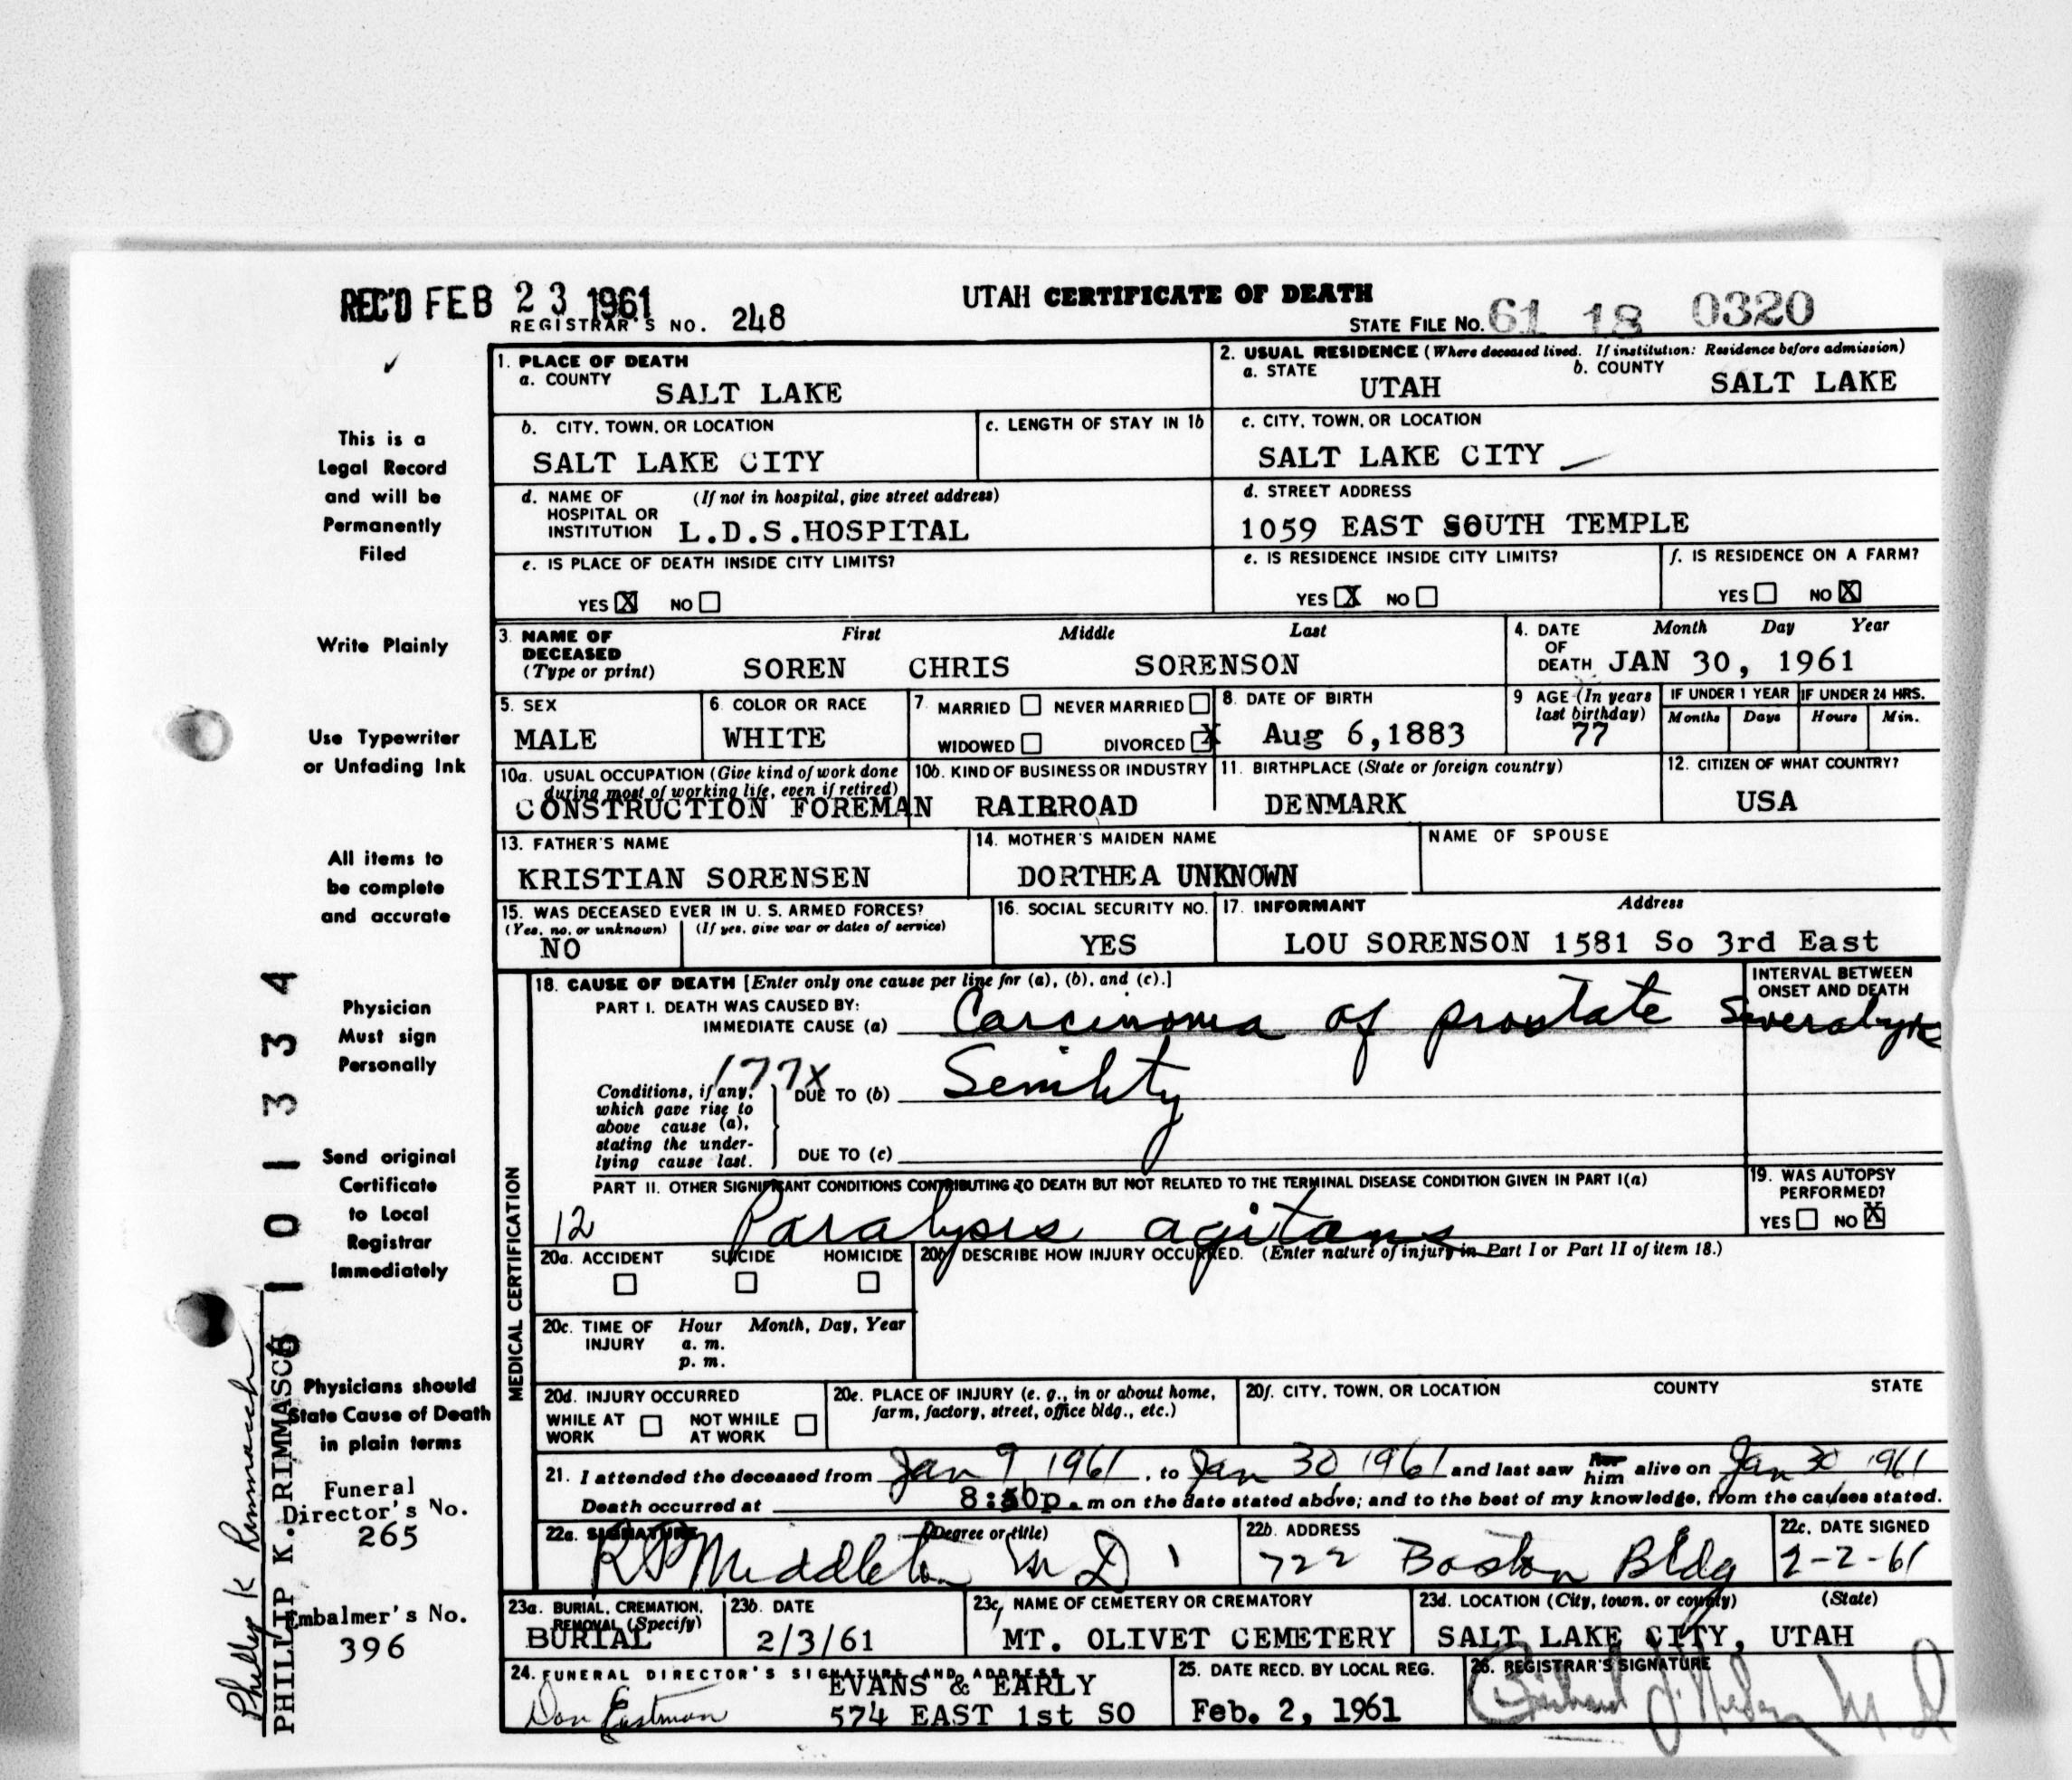 REC'D FEB 23 1961
REGISTRAR'S NO. 248
UTAH CERTIFICATE OF DEATH
STATE FILE NO. 61 18 0320
This is a
Legal Record
and will be
Permanently
Filed
Write Plainly
Use Typewriter
or Unfading Ink
All items to
be complete
and accurate
Physician
Must sign
Personally
Send original
Certificate
to Local
Registrar
Immediately
Physicians should
State Cause of Death
in plain terms
Funeral
Director's No.
265
Embalmer's No.
396
PHILLIP K. RIMMASCH
1. PLACE OF DEATH
a. COUNTY SALT LAKE
2. USUAL RESIDENCE (Where deceased lived. If institution: Residence before admission)
a. STATE UTAH b. COUNTY SALT LAKE
b. CITY, TOWN, OR LOCATION SALT LAKE CITY
c. LENGTH OF STAY IN 1b
c. CITY, TOWN, OR LOCATION
SALT LAKE CITY
d. NAME OF HOSPITAL OR INSTITUTION (If not in hospital, give street address)
L.D.S.HOSPITAL
d. STREET ADDRESS
1059 EAST SOUTH TEMPLE
e. IS PLACE OF DEATH INSIDE CITY LIMITS?
YES X NO
e. IS RESIDENCE INSIDE CITY LIMITS?
YES X NO
f. IS RESIDENCE ON A FARM?
YES NO X
3. NAME OF DECEASED (Type or print)
First Middle Last
SOREN CHRIS SORENSON
4. DATE OF DEATH Month Day Year
JAN 30, 1961
5. SEX
MALE
6. COLOR OR RACE
WHITE
7. MARRIED NEVER MARRIED
WIDOWED DIVORCED X
8. DATE OF BIRTH
Aug 6,1883
9 AGE (In years last birthday)
77
IF UNDER 1 YEAR IF UNDER 24 HRS.
Months Days Hours Min.
10a. USUAL OCCUPATION (Give kind of work done
during most of working life, even if retired)
CONSTRUCTION FOREMAN
10b. KIND OF BUSINESS OR INDUSTRY
RAILROAD
11. BIRTHPLACE (State or foreign country)
DENMARK
12. CITIZEN OF WHAT COUNTRY?
USA
13. FATHER'S NAME
KRISTIAN SORENSEN
14. MOTHER'S MAIDEN NAME
DORTHEA UNKNOWN
NAME OF SPOUSE
15. WAS DECEASED EVER IN U. S. ARMED FORCES?
(Yes, no, or unknown) (If yes, give war or dates of service)
NO
16. SOCIAL SECURITY NO.
YES
17. INFORMANT Address
LOU SORENSON 1581 So 3rd East
MEDICAL CERTIFICATION
18. CAUSE OF DEATH [Enter only one cause per line for (a), (b), and (c).]
INTERVAL BETWEEN
ONSET AND DEATH
PART I. DEATH WAS CAUSED BY:
IMMEDIATE CAUSE (a) Carcinoma of prostate Several yrs
177X
Conditions, if any,
which gave rise to
above cause (a),
stating the under-
lying cause last.
DUE TO (b) Senility
DUE TO (c)
PART II. OTHER SIGNIFICANT CONDITIONS CONTRIBUTING TO DEATH BUT NOT RELATED TO THE TERMINAL DISEASE CONDITION GIVEN IN PART I(a)
12 Paralysis agitans
19. WAS AUTOPSY
PERFORMED?
YES NO X
20a. ACCIDENT SUICIDE HOMICIDE
20b. DESCRIBE HOW INJURY OCCURRED. (Enter nature of injury in Part I or Part II of item 18.)
20c. TIME OF INJURY Hour Month, Day, Year
a. m.
p. m.
20d. INJURY OCCURRED
WHILE AT WORK NOT WHILE AT WORK
20e. PLACE OF INJURY (e. g., in or about home,
farm, factory, street, office bldg., etc.)
20f. CITY, TOWN, OR LOCATION COUNTY STATE
21. I attended the deceased from Jan 9 1961, to Jan 30 1961 and last saw her him alive on Jan 30 1961
Death occurred at 8:50p.m on the date stated above; and to the best of my knowledge, from the causes stated.
22a. SIGNATURE (Degree or title)
R P Middleton M D
22b. ADDRESS
722 Boston Bldg
22c. DATE SIGNED
2-2-61
23a. BURIAL, CREMATION,
REMOVAL (Specify)
BURIAL
23b. DATE
2/3/61
23c. NAME OF CEMETERY OR CREMATORY
MT. OLIVET CEMETERY
23d. LOCATION (City, town, or county) (State)
SALT LAKE CITY, UTAH
24. FUNERAL DIRECTOR'S SIGNATURE AND ADDRESS
Don Eastman
EVANS & EARLY
574 EAST 1st SO
25. DATE RECD. BY LOCAL REG.
Feb. 2, 1961
26. REGISTRAR'S SIGNATURE